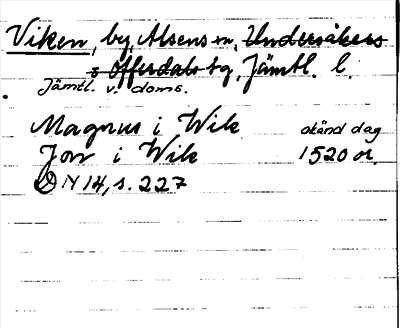 Viken, by, Alsens sn, Undersåkers
o Offerdals tg, Jämtl. l.
Jämtl. v. doms.
Magnus i Wik okänd dag
Jon i Wik 1520 or.
DN 14, s. 227